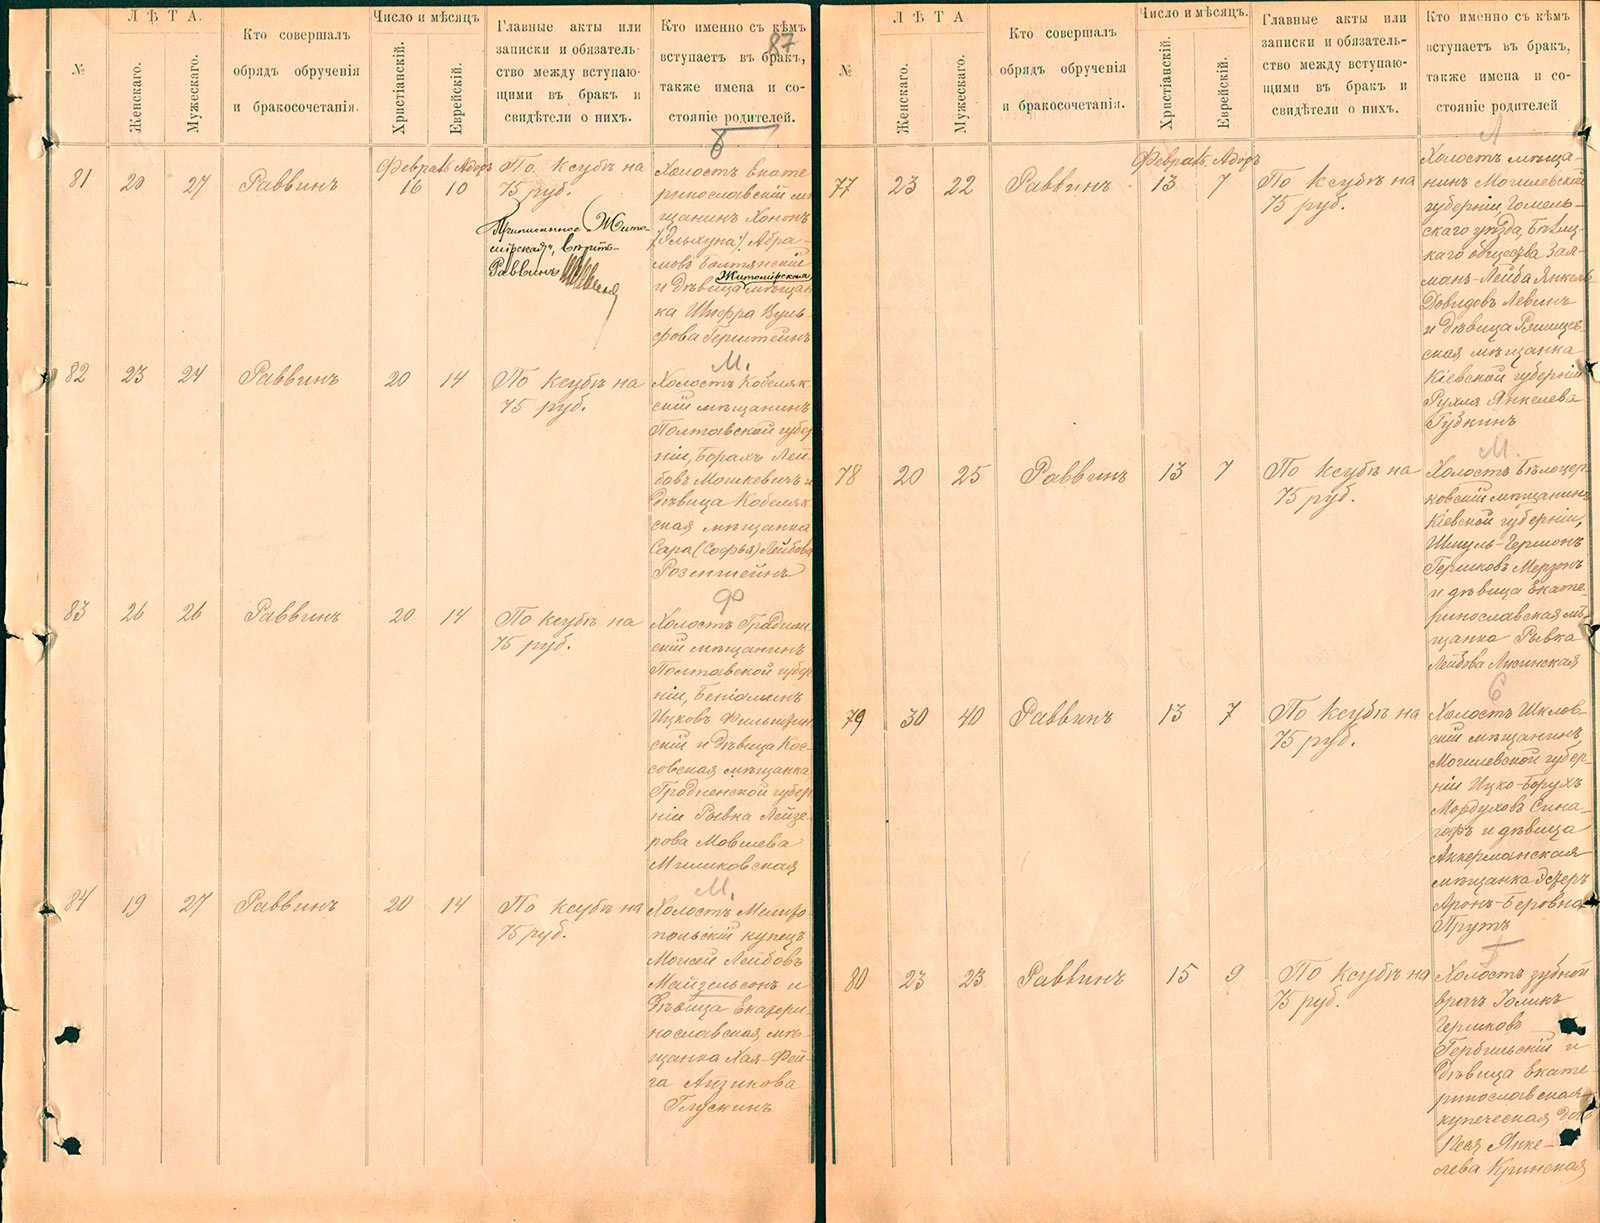 87
Л Ѣ Т А.
Число и мѣсяцъ
№
Женскаго.
Мужескаго.
Кто совершалъ
обрядъ обрученія
и бракосочетанія.
Христіанскій.
Еврейскій.
Главные акты или
записки и обязатель-
ство между вступаю-
щими въ бракъ и
свидѣтели о нихъ.
Кто именно съ кѣмъ
вступаетъ въ бракъ,
также имена и со-
стояніе родителей.
Б
81
20
27
Раввинъ
Февраль Адоръ
16
10
По ксубѣ на
75 руб.
Приписанное „Жито-
мірская", вѣрить
Раввинъ
Холостъ Екате
ринославскій мѣ
щанинъ Хононъ
Абра-
мовъ Болтянскій
Житомірская
и дѣвица мѣщан
ка Шифра Вуль-
фова Герштейнъ
М.
82
23
24
Раввинъ
20
14
По ксубѣ на
75 руб.
Холостъ Кобеляк
скій мѣщанинъ
Полтавской губер
ніи, Борахъ Лей
бовъ Мошкевичъ и
дѣвица Кобеляк
ская мѣщанка
Сара (Софья) Лейбова
Розенштейнъ
Ф
83
26
26
Раввинъ
20
14
По ксубѣ на
75 руб.
Холостъ Градиж
скій мѣщанинъ
Полтавской губер
ніи, Беніаминъ
Ицковъ
скій и дѣвица Кос-
совская мѣщанка
Гродненской губер
ніи Рывка Лейзе-
рова Мовшева
Мышковская
М.
84
19
27
Раввинъ
20
14
По ксубѣ на
75 руб.
Холостъ Мелито-
польскій купецъ
Моисей Лейбовъ
Майзельсонъ и
дѣвица Екатери
нославская мѣ-
щанка Хая-Фей-
га Айзикова
Глускинъ
Л Ѣ Т А
Число и мѣсяцъ.
№
Женскаго.
Мужескаго.
Кто совершалъ
обрядъ обрученія
и бракосочетанія.
Христіанскій.
Еврейскій.
Главные акты или
записки и обязатель-
ство между вступаю-
щими въ бракъ и
свидѣтели о нихъ.
Кто именно съ кѣмъ
вступаетъ въ бракъ,
также имена и со-
стояніе родителей
Л
77
23
22
Раввинъ
Февраль Адоръ
13
7
По ксубѣ на
75 руб.
Холостъ мѣща-
нинъ Могилевской
губерніи, Гомель-
скаго уѣзда, Бѣлиц-
каго общества Зал-
манъ-Лейба Янкель-
Довидовъ Левинъ
и дѣвица Ржищев-
ская мѣщанка
Кіевской губерніи
Рухля Янкелева
Губкинъ
М.
78
20
25
Раввинъ
13
7
По ксубѣ на
75 руб.
Холостъ Бѣлоцер
ковскій мѣщанинъ
Кіевской губерніи,
Шмуль-Гершонъ
Гершковъ Мерзонъ
и дѣвица Екате
ринославская мѣ
щанка Рывка
Лейбова Лисинская
С
79
30
40
Раввинъ
13
7
По ксубѣ на
75 руб.
Холостъ Шклов-
скій мѣщанинъ
Могилевской губер
ніи Ицко-Борухъ
Мордуховъ Сина-
гофъ и дѣвица
Аккерманская
мѣщанка Эстеръ
Аронъ-Беровна
Прутъ
Г
80
23
23
Раввинъ
15
9
По ксубѣ на
75 руб.
Холостъ зубной
врачъ
Гершковъ
Гербильскій и
дѣвица Екате
ринославская
купеческая дочь
Песя Янке-
лева Кринская